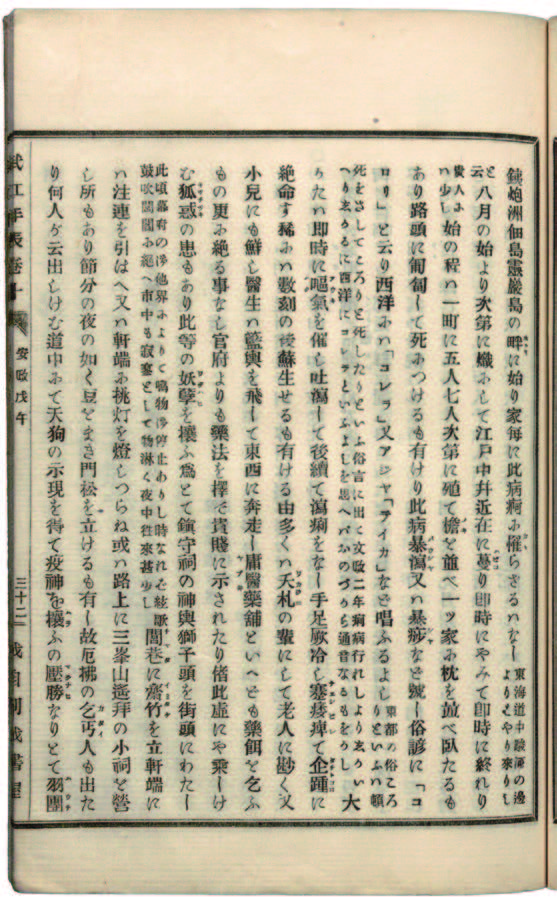 鉄炮洲佃島霊巌島の畔に始り家毎に此病痾に罹らざるハなし東海道中駿河の邊よりはやり来りしと
云八月の始より次第に熾にして江戸中并近在に蔓り即時にやみて即時に終れり
貴人ハ少し始の程ハ一町に五人七人次第に殖て檐を並べ一ッ家に枕を並べ臥たるも
あり路頭に匍匐して死につけるも有けり此病暴瀉又ハ暴痧など號し俗諺に「コ
ロリ」と云り西洋にハ「コレラ」又アジヤ「テイカ」など唱ふるよし東都の俗ころりといふハ頓
死をさしてころりと死したりといふ俗言に出て文政二年痢病行れしより
大
かたハ即時に嘔氣を催し吐瀉して後續て瀉痢をなし手足厥冷し攣痿痺て企踵に
絶命す稀にハ數刻の後蘇生せるも有ける由多くハ夭札の輩にして老人に尠く又
小児にも鮮し醫生ハ籃輿を飛して東西に奔走し庸醫藥舗といへども藥餌を乞ふ
もの更に絶る事なし官府よりも藥法を擇て貴賤に示されたり偖此虚にや乗しけ
む狐惑の患もあり此等の妖孽を攘ふ為とて鎮守祠の神輿獅子頭を街頭にわたし
鼓吹閙闐に絶へ市中も寂寞として物淋く夜中往来甚少し閭巷に斎竹を立軒端に
ハ注連を引はへ又ハ軒端に挑灯を燈しつらね或ハ路上に三峯山遥拝の小祠を營
し所もあり節分の夜の如く豆をまき門松を立けるも有し故厄拂の乞丐人も出た
り何人か云出しけむ道中にて天狗の示現を得て疫神を攘ふの壓勝なりとて羽團
武江年表巻十
安政戊午
三十二